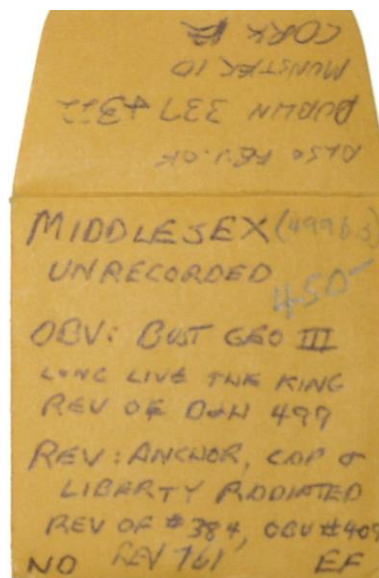 ALSO REV. OF
DUBLIN 337 & 322
MUNSTER 10
CORK 2
MIDDLESEX (499 bis)
UNRECORDED
450-
OBV: BUST GEO III
LONG LIVE THE KING
REV OF D&H 499
REV: ANCHOR, CAP OF
LIBERTY RADIATED
REV OF #384, OBV #409
NO REV 761 EF